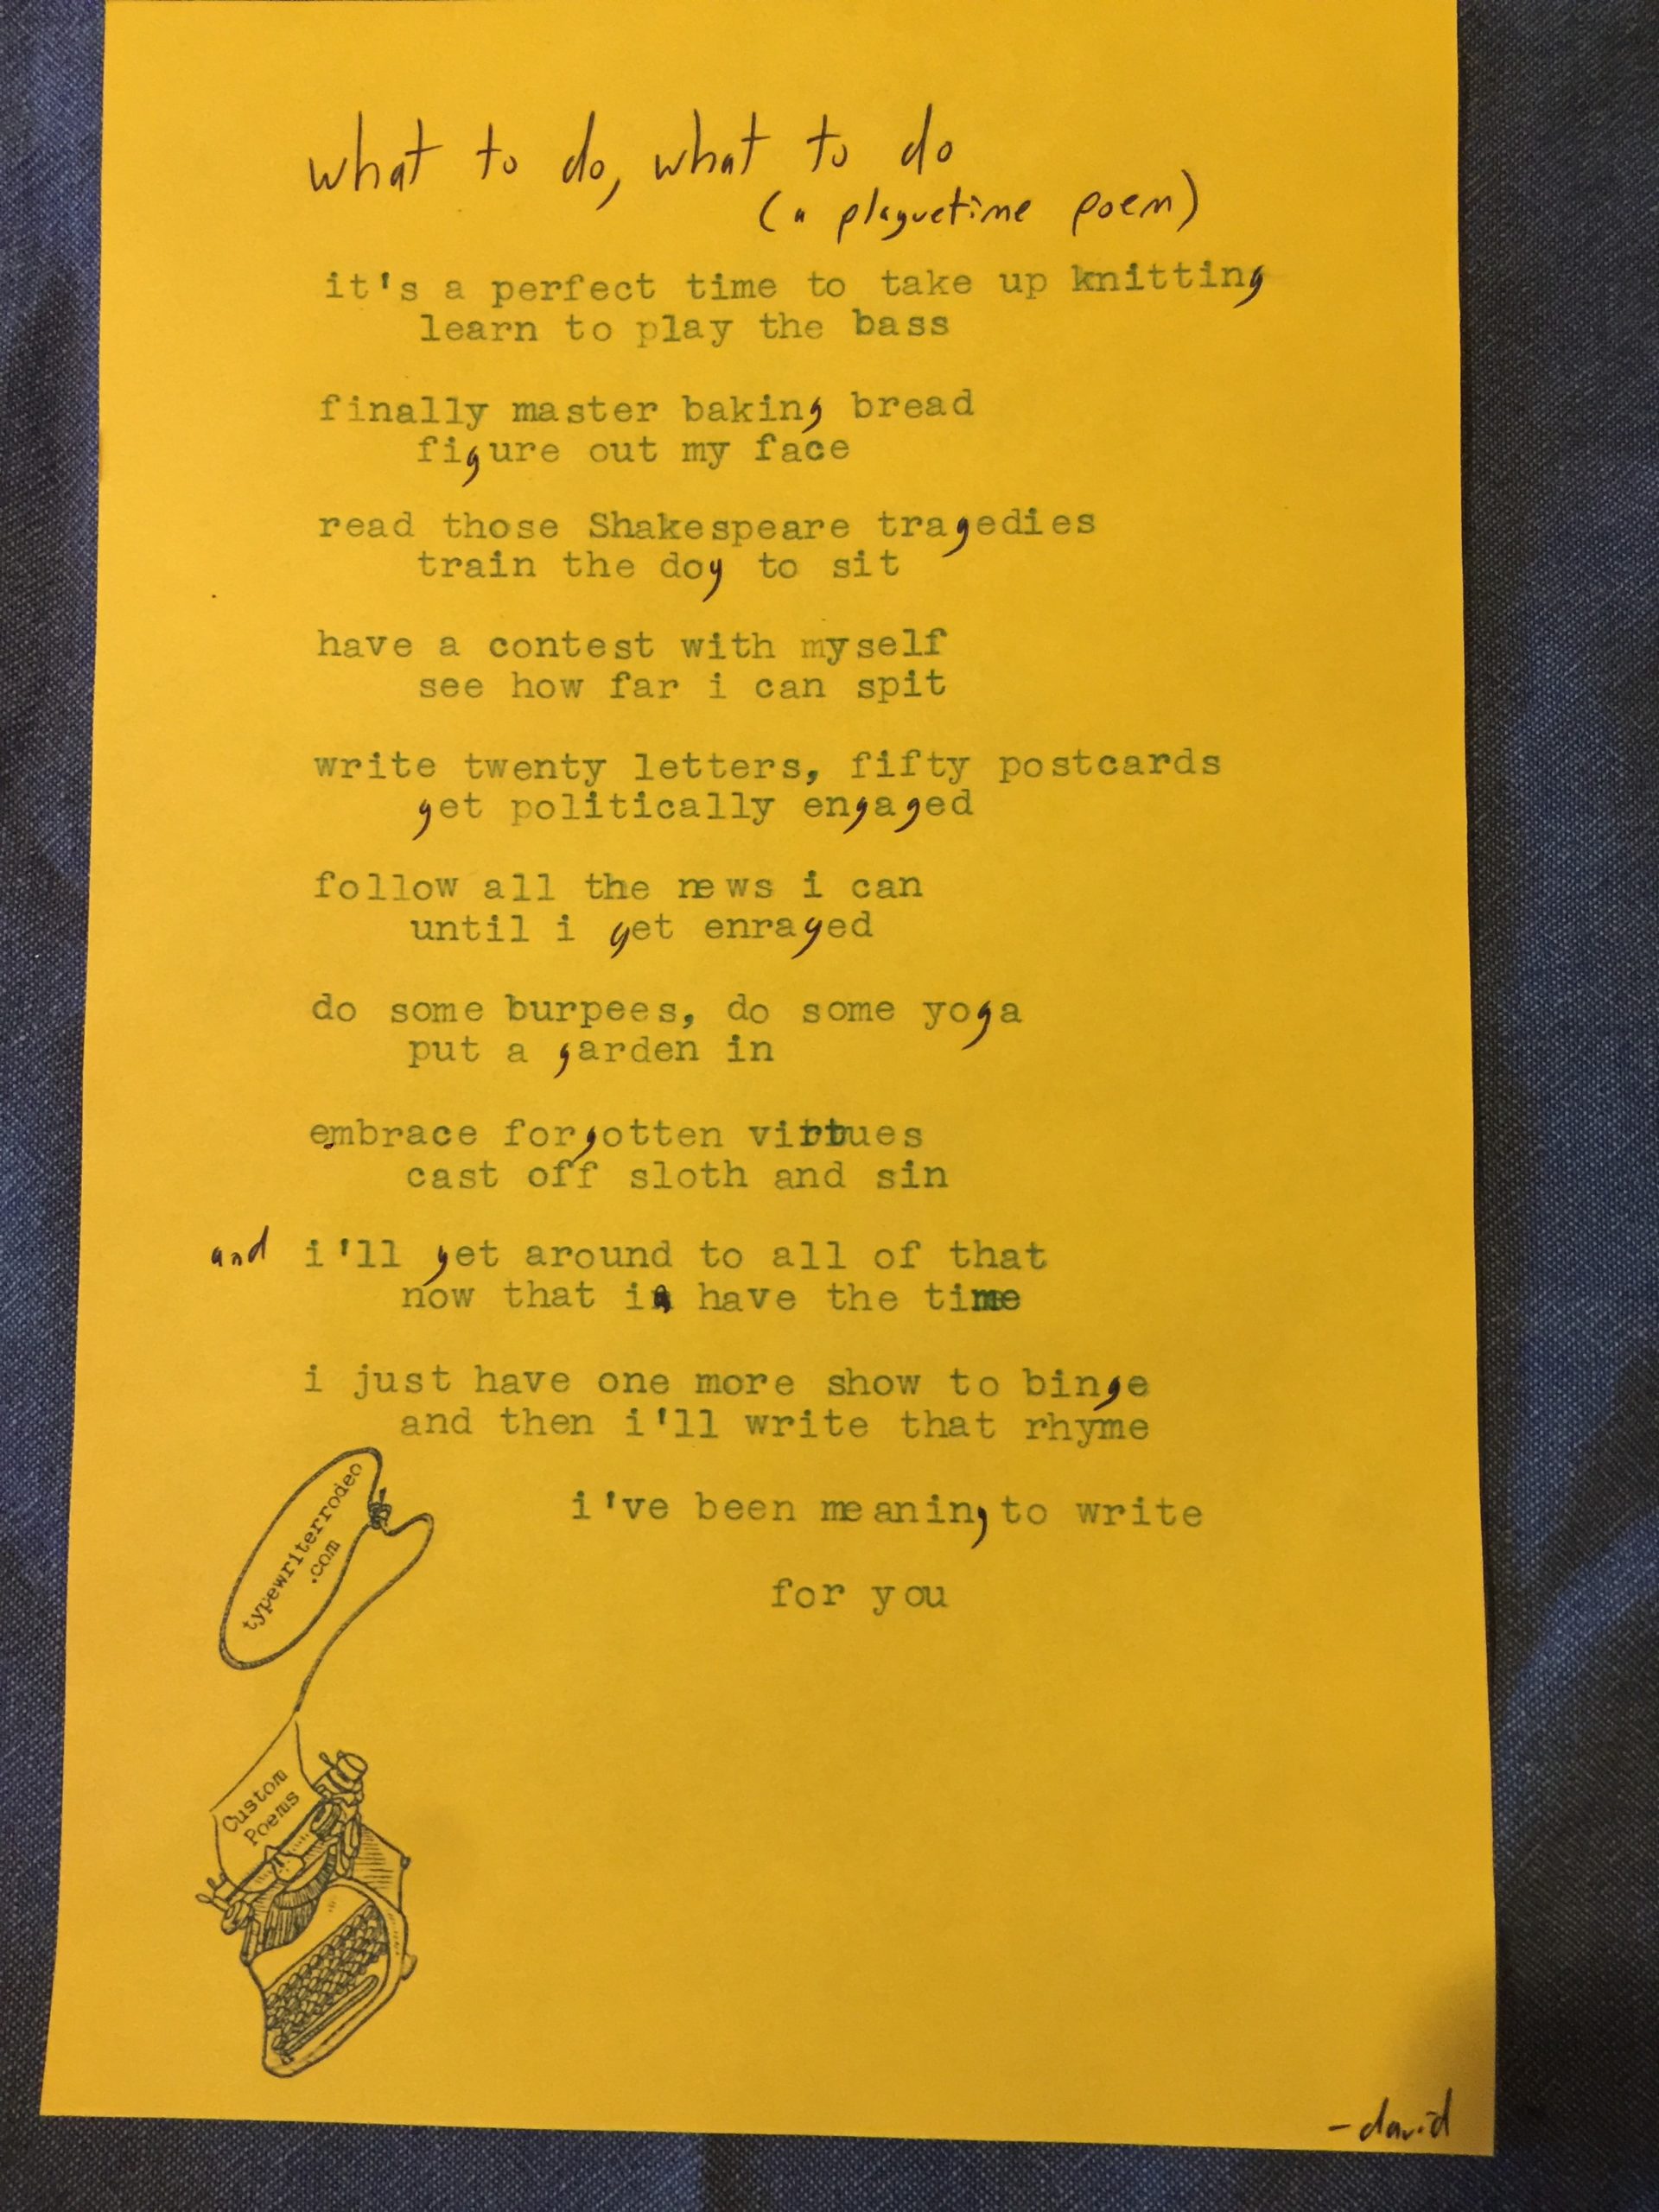 what to do, what to do
(a plaguetime poem)
it's a perfect time to take up knitting
learn to play the bass
finally master baking bread
figure out my face
read those Shakespeare tragedies
train the dog to sit
have a contest with myself
see how far i can spit
write twenty letters, fifty postcards
get politically engaged
follow all the news i can
until i get enraged
do some burpees, do some yoga
put a garden in
embrace forgotten virtues
cast off sloth and sin
and i'll get around to all of that
now that i have the time
i just have one more show to binge
and then i'll write that rhyme
i've been meaning to write
for you
typewriterrodeo
.com
Custom
Poems
-david